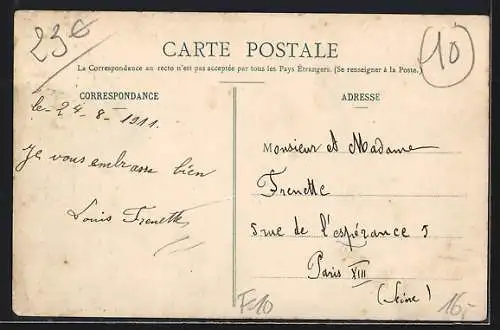 23€
(10)
CARTE POSTALE
La Correspondance au recto n'est pas acceptée par tous les Pays Étrangers. (Se renseigner à la Poste.)
CORRESPONDANCE
ADRESSE
le 24-8-1911.
Je vous embrasse bien
Louis Frenette
Monsieur et Madame
Frenette
5 rue de l'espérance 5
Paris XIII
(Seine)
F210
16,-